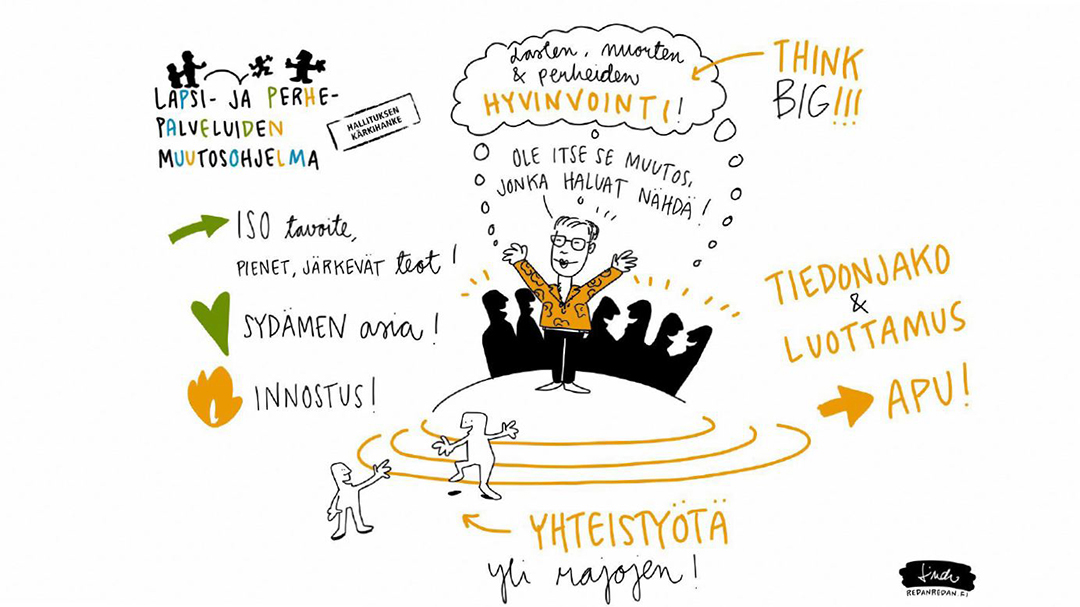 LAPSI- JA PERHE-
PALVELUIDEN
MUUTOSOHJELMA
HALLITUKSEN
KÄRKIHANKE
Lasten, nuorten
& perheiden
HYVINVOINTI!
THINK
BIG!!!
OLE ITSE SE MUUTOS,
JONKA HALUAT NÄHDÄ!
ISO tavoite,
PIENET, JÄRKEVÄT teot!
SYDÄMEN asia!
INNOSTUS!
TIEDONJAKO
&
LUOTTAMUS
APU!
YHTEISTYÖTÄ
yli rajojen!
REDANREDAN.FI